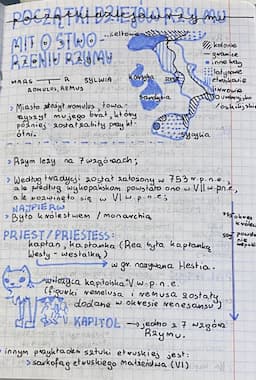 POCZĄTKI DZIEJÓW RZYMU
MIT O STWO-
RZENIU RZYMU
...celtowie
kolonie
greckie
inne ludy
latynowie
etruskowie
Korsyka
Sardynia
Sycylia
MARS R SYLWIA
ROMULUS, REMUS
> Miasto złożył romulus, towa-
rzyszył mu jego brat, który
później został zabity przykł-
ótni.
> Rzym leży na 7 wzgórzach;
> Według tradycji został założony w 753 r p.n.e,
ale według wykopaliskom powstało ono w VII w p.n.e,
ale rozwinęło się w VI w p.n.e;
NAJPIERW
> Było królestwem / monarchią
PRIEST/PRIESTESS:
kapłan, kapłanka (Rea była kapłanką
Westy - westalką)
→ w gr. nazywana Hestia.
wilczyca kapitolska V w p.n.e.
(figurki romulusa i remusa zostały
dodane w okresie renesansu)
KAPITOL → jedno z 7 wzgórz
Rzymu.
innym przykładem sztuki etruskiej jest:
> sarkofag etruskiego małżeństwa (VI)